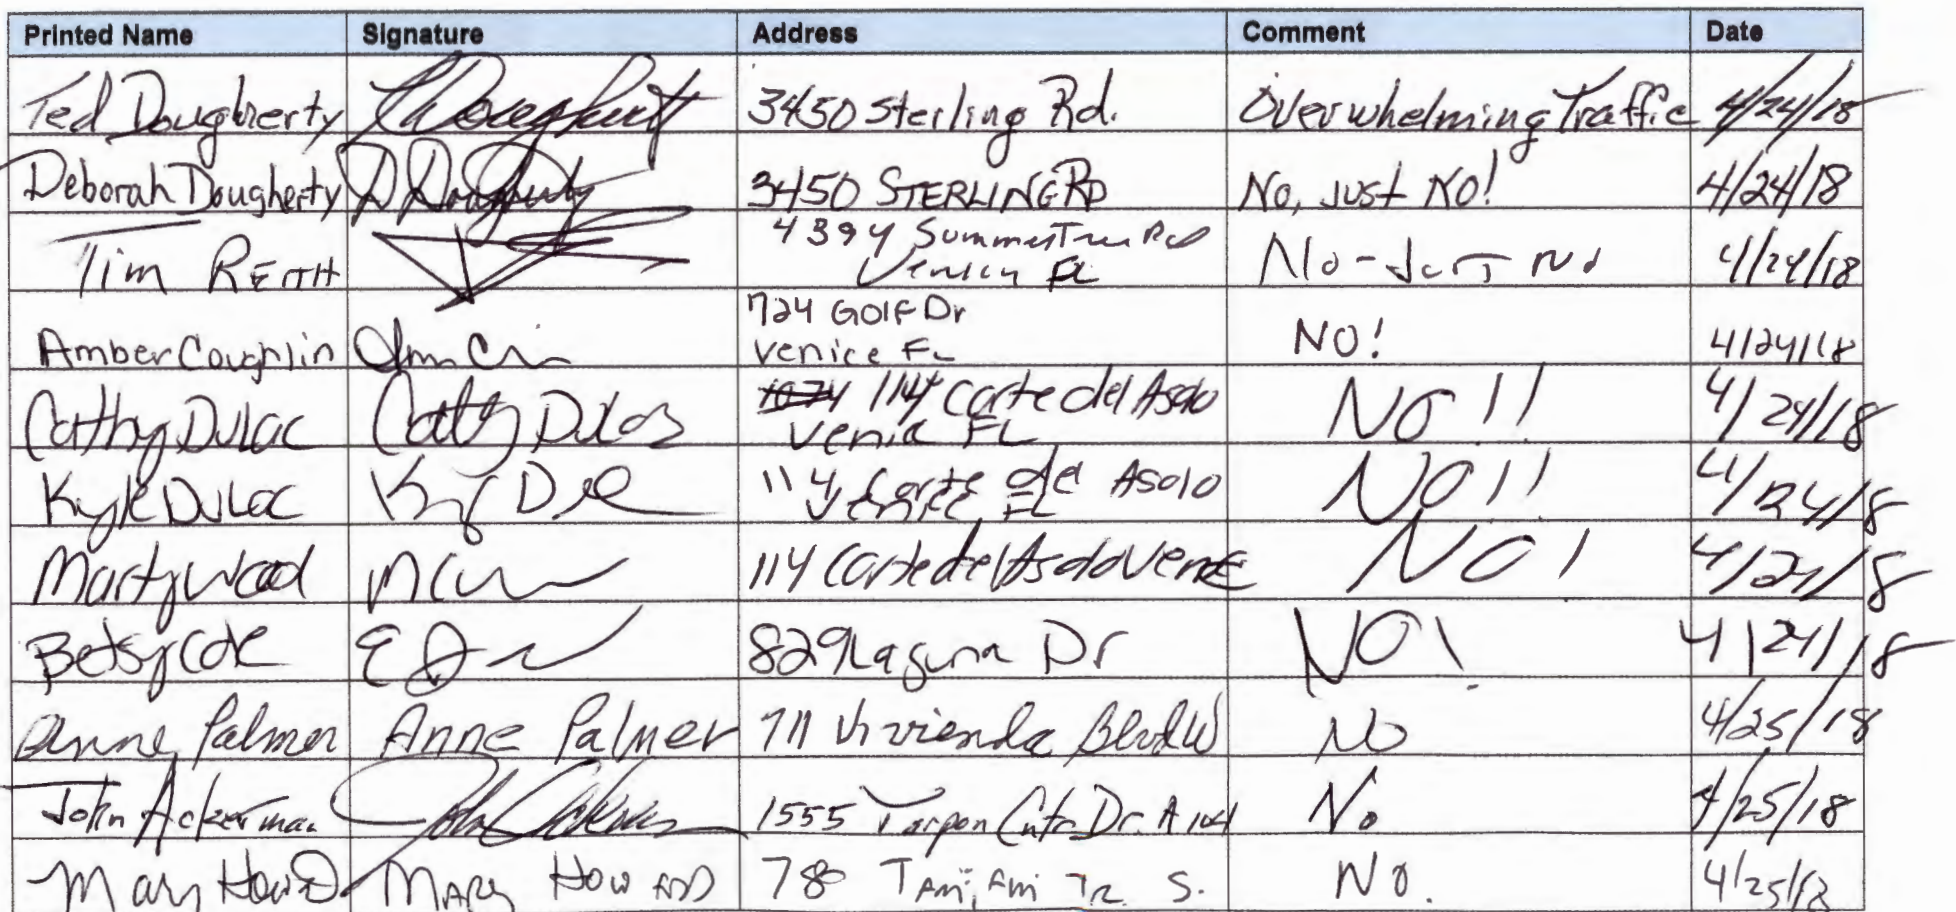 Printed Name Signature Address Comment Date
Ted Dougherty TDougherty 3450 Sterling Rd. Overwhelming Traffic 4/24/18
Deborah Dougherty D Dougherty 3450 STERLING RD No, Just NO! 4/24/18
Tim REITH 4394 Summertree Rd No - Just No 4/24/18
Venice FL
Amber Coughlin 724 GOLF Dr NO! 4/24/18
Venice FL
Cathy Dulac Cathy Dulac 114 Corte del Asolo NO!! 4/24/18
Venice FL
Kyle Dulac 114 Corte del Asolo NO!! 4/24/18
Venice FL
Marty Wood 114 Corte del Asolo Venice NO! 4/24/18
Betsy Cote 829 Laguna Dr NO! 4/24/18
Anne Palmer Anne Palmer 711 Vivienda Blvd W NO 4/25/18
John Ackerman John Ackerman 1555 Tarpon Cntr Dr. A 104 No 4/25/18
Mary Howard MARY HOWARD 78 TAMIAMI TR. S. NO. 4/25/18